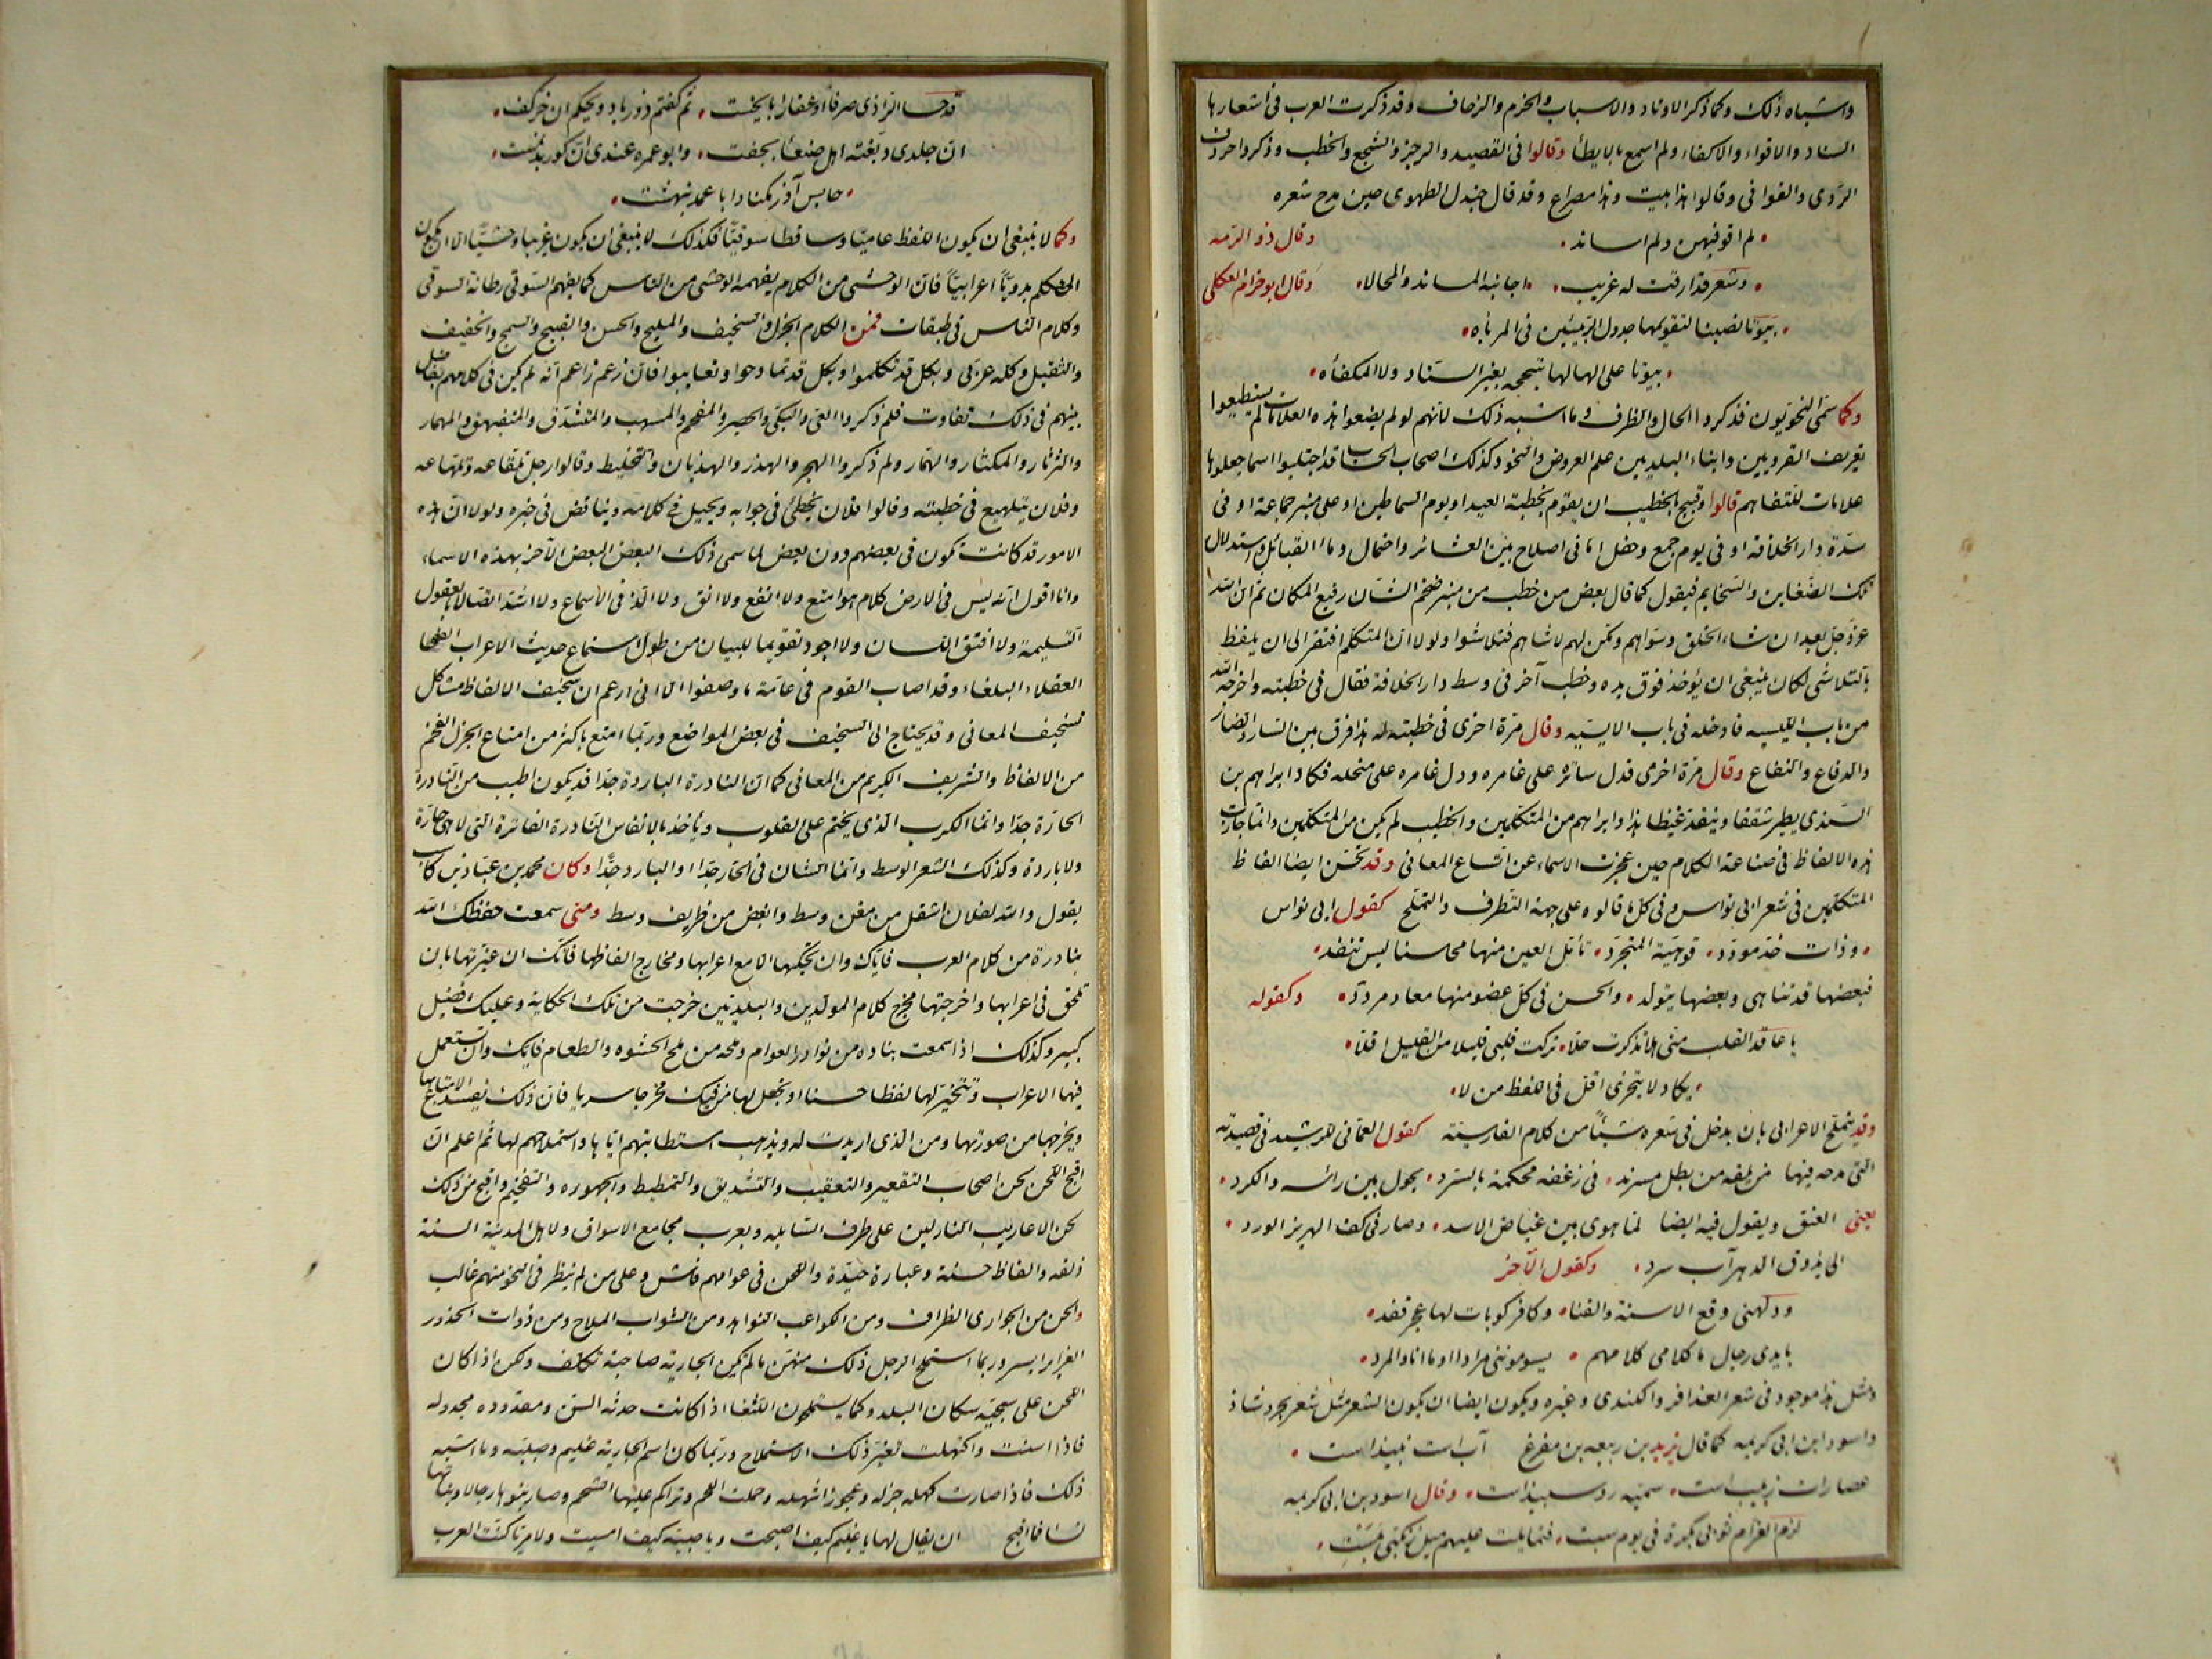 واشباه ذلك وكما ذكر الاوتاد والاسباب والخرم والزحاف وقد ذكرت العرب في أشعارها
السناد والاقواء والاكفاء ولم اسمع بالايطأ وقالوا في القصيد والرجز والسجع والخطب وذكروا حروف
الروى والقوافى وقالوا هذا بيت وهذا مصراع وقد قال جندل الطهوى حين مدح شعره
لم اقو فيهن ولم اساند وقال ذو الرمه
وشعر قد ارقت له غريب اجانبه المساند والمحالا وقال ابو حزام العكلى
بيوتا نصبنا لتقويمها جدول الربيئين فى المربأه
بيوتا على الهالها سجحه بغير السناد ولا المكفأه
وكما سمى النحويون فذكروا الحال والظرف وما اشبه ذلك لانهم لو لم يضعوا هذه العلامات لم يستطيعوا
تعريف القرويين وابناء البلديين علم العروض والنحو وكذلك اصحاب الحساب قد اجتلبوا اسما جعلوها
علامات للتفاهم قالوا وقبيح بالخطيب ان يقوم بخطبة العيد او يوم السماطين او على منبر جماعة او فى
سدة دار الخلافة او فى يوم جمع وحفل اما فى اصلاح بين العشائر واحتمال دماء القبائل واستدلال
تلك الضغاين والسخايم فيقول كما قال بعض من خطب من منبر ضخم الشان رفيع المكان ثم ان الله
عز وجل بعد ان شاء الخلق وسواهم ومكن لهم لاشاهم فتلاشوا ولولا ان المتكلم افتقر الى ان يلفظ
بالتلاشى لكان ينبغى ان يؤخذ فوق يده وخطب آخر فى وسط دار الخلافة فقال فى خطبته واخرجه الله
من باب الليسيه فادخله فى باب الايسيه وقال مرة اخرى فى خطبته له هذا فرق بين السار والضار
والدفاع والنفاع وقال مرة اخرى فدل سائره على غامره ودل غامره على منحله فكاد ابراهيم بن
السندى يطير شققا وينقد غيظا هذا وابراهيم من المتكلمين والخطيب لم يكن من المتكلمين وانما جازت
هذه الالفاظ فى صناعة الكلام حين عجزت الاسماء عن اتساع المعانى وقد تحسن ايضا الفاظ
المتكلمين فى شعر ابى نواس وفى كل ما قالوه على جهة التظرف والتملح كقول ابى نواس
وذات خد مورد قوهية المتجرد تأمل العين منها محاسنا ليس تنفد
فبعضها قد تناهى وبعضها يتولد والحسن فى كل عضو منها معاد مردد وكقوله
يا عاقد القلب منى هلا تذكرت حلا تركت قلبى قليلا من القليل اقلا
يكاد لا يتجزى اقل فى اللفظ من لا
وقد يتملح الاعرابى بان يدخل فى شعره شيئا من كلام الفارسية كقول العمانى للرشيد فى قصيدته
التى مدحه فيها من يلقه من بطل مسرند فى زغفه محكمة بالسرد يجول بين رأسه والكرد
يعنى العنق ويقول فيه ايضا لما هوى بين غياض الاسد وصار فى كف الهزبر الورد
الى يذوق الدهر آب سرد وكقول الآخر
وولهنى وقع الاسنة والقنا وكافر كوبات لها عجر قفد
بايدى رجال ما كلامى كلامهم يسوموننى مرادا وما انا والمرد
ومثل هذا موجود فى شعر العذافر والكندى وغيره ويكون ايضا ان يكون الشعر مثل شعر بحر وشاذ
واسود ابن ابى كريمه كما قال يزيد بن ربيعه بن مفرغ آب است نبيذ است
عصارات زبيب است سميه رو سبيذ است وقال اسود بن ابى كريمه
لزم الغرام ثوبى بكرة فى يوم سبت فتمايلت عليهم ميل زنكى بمستى
قد حسا الداذى صرفا او عقارا بايخست ثم كفتم ذو زباد ويحكم ان خر كفت
ان جلدى دبغته اهل صنعا بجفت وابو عمره عندى ان كوربد نمست
جالس اندر مكناد ابا عمد ببهشت
وكما لا ينبغى ان يكون اللفظ عاميا وساقطا سوقيا فكذلك لا ينبغى ان يكون غريبا وحشيا الا ان يكون
المتكلم بدويا اعرابيا فان الوحشى من الكلام يفهمه الوحشى من الناس كما يفهم السوقى رطانة السوقى
وكلام الناس فى طبقات فمن الكلام الجزل والسخيف والمليح والحسن والقبيح والسمج والخفيف
والثقيل وكله عربى وبكل قد تكلموا وبكل قد تمادحوا وتعايبوا فان زعم زاعم انه لم يكن فى كلامهم تفاضل
بينهم فى ذلك تفاوت فلم ذكروا العى والبكى والحصر والمفحم والمسهب والمتشدق والمتفيهق والمهمار
والثرثار والمكثار والهمار ولم ذكروا الهجر والهذر والهذيان والتخليط وقالوا رجل تلقاعه وتلهاعه
وفلان يتلهيع فى خطبته وقالوا فلان يخطئ فى جوابه ويحيل فى كلامه ويناقض فى خبره ولولا ان هذه
الامور قد كانت تكون فى بعضهم دون بعض لما سمى ذلك البعض البعض الآخر بهذه الاسماء
وانا اقول انه ليس فى الارض كلام هو امتع ولا انفع ولا انق ولا الذ فى الاسماع ولا اشد اتصالا بالعقول
السليمة ولا افتق اللسان ولا اجود تقويما للبيان من طول استماع حديث الاعراب الفصحا
العقلاء البلغاء وقد اصاب القوم فى عامة ما وصفوا الا انى ازعم ان سخيف الالفاظ مشاكل
لسخيف المعانى وقد يحتاج الى السخيف فى بعض المواضع وربما امتع باكثر من امتاع الجزل الفخم
من الالفاظ والشريف الكريم من المعانى كما ان النادرة الباردة جدا قد يكون اطيب من النادرة
الحارة جدا وانما الكرب الذى يختم على القلوب ويأخذ بالانفاس النادرة الفاترة التى لا هى حارة
ولا باردة وكذلك الشعر الوسط وانما الشان فى الحار جدا او البارد جدا وكان محمد بن عباد بن كاسب
يقول والله لفلان اثقل من مغن وسط وابغض من ظريف وسط ومتى سمعت حفظك الله
بنادرة من كلام العرب فاياك وان تحكيها الا مع اعرابها ومخارج الفاظها فانك ان غيرتها بان
تلحق فى اعرابها واخرجتها مخرج كلام المولدين والبلديين خرجت من تلك الحكاية وعليك فضل
كبير وكذلك اذا سمعت بنادره من نوادر العوام وملحه من ملح الحشوه والطعام فاياك وان تستعمل
فيها الاعراب وتتخير لها لفظا حسنا او تجعل لها من فيك مخرجا سريا فان ذلك يفسد الامتاع بها
ويخرجها من صورتها ومن الذى اريدت له ويذهب استطابتهم اياها واستملاحهم لها ثم اعلم ان
اقبح اللحن لحن اصحاب التقعير والتعقيب والتشديق والتمطيط والجهوره والتفخيم واقبح من ذلك
لحن الاعاريب النازلين على طرف السابله وبعرب مجامع الاسواق ولاهل المدينة السنة
ذلقه والفاظ حسنة وعبارة جيدة واللحن فى عوامهم فاش وعلى من لم ينظر فى النحو منهم غالب
والحن من الجوارى الظراف ومن الكواعب النواهد ومن الشواب الملاح ومن ذوات الخدور
الغراير ايسر وربما استملح الرجل ذلك منهن ما لم تكن الجاريه صاحبة تكلف ولكن اذا كان
اللحن على سجيه سكان البلد وكما يستملحون اللثغا اذا كانت حدثه السن ومقدوده مجدوله
فاذا اسنت واكتهلت تغير ذلك الاستملاح وربما كان اسم الجاريه غليم وصبيه وما اشبه
ذلك فاذا صارت كهله جزله وعجوزا شهله وحملت اللحم وتراكم عليها الشحم وصار بنوها رجالا وبناتها
نسا فما اقبح ان يقال لها يا غليم كيف اصبحت ويا صبيه كيف امسيت ولامر ما كنت العرب